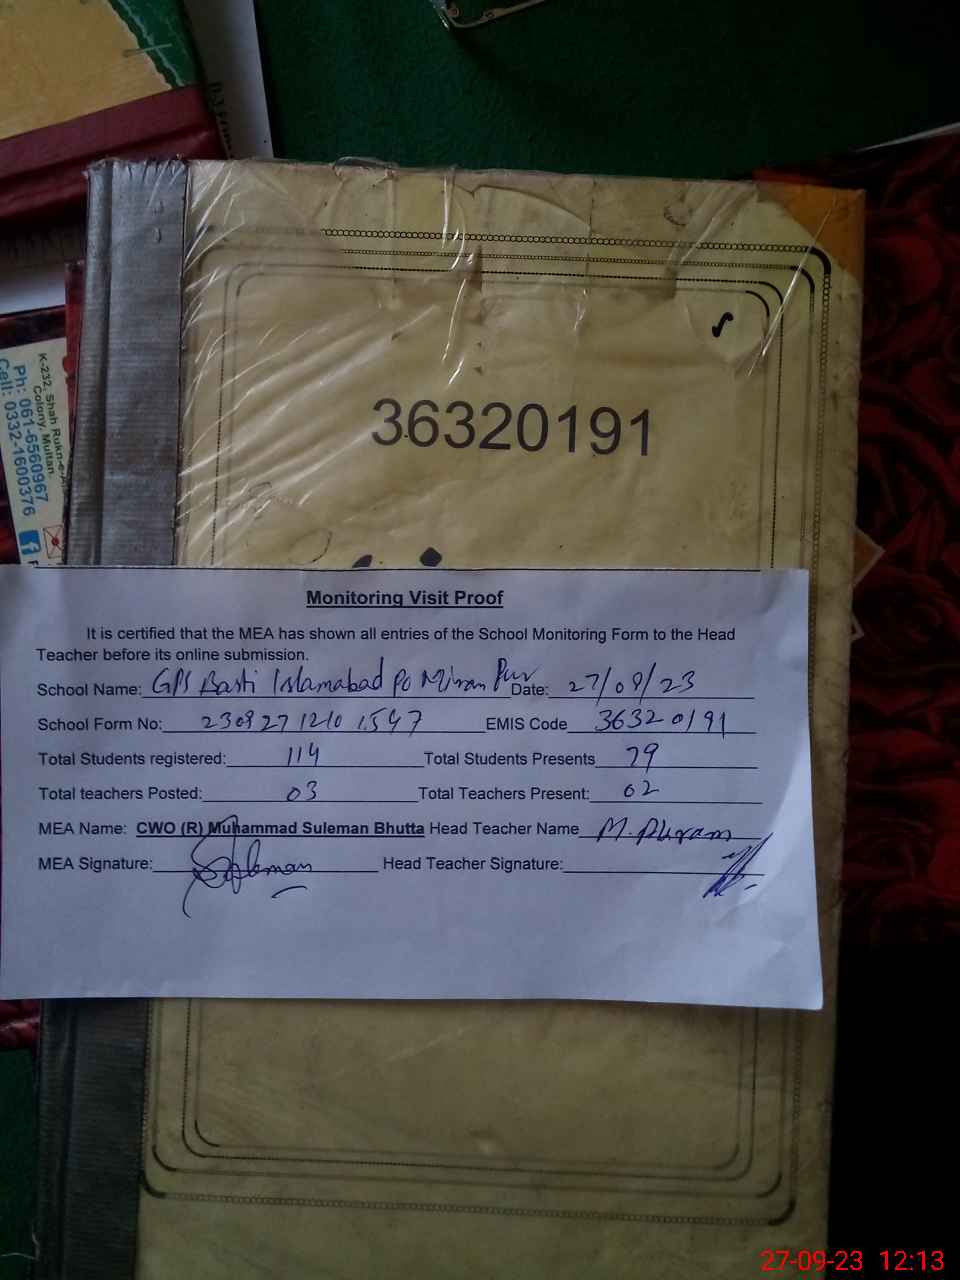 K-232, Shah Rukn-e-
Colony, Multan.
Ph: 061-6560967
Cell: 0332-1600376
36320191
Monitoring Visit Proof
It is certified that the MEA has shown all entries of the School Monitoring Form to the Head
Teacher before its online submission.
School Name: GPS Basti Islamabad PO Miran Pur Date: 27/09/23
School Form No: 230927 1210 1547 EMIS Code 36320191
Total Students registered: 114 Total Students Presents 79
Total teachers Posted: 03 Total Teachers Present: 02
MEA Name: CWO (R) Muhammad Suleman Bhutta Head Teacher Name M.
MEA Signature: Suleman Head Teacher Signature:
27-09-23 12:13